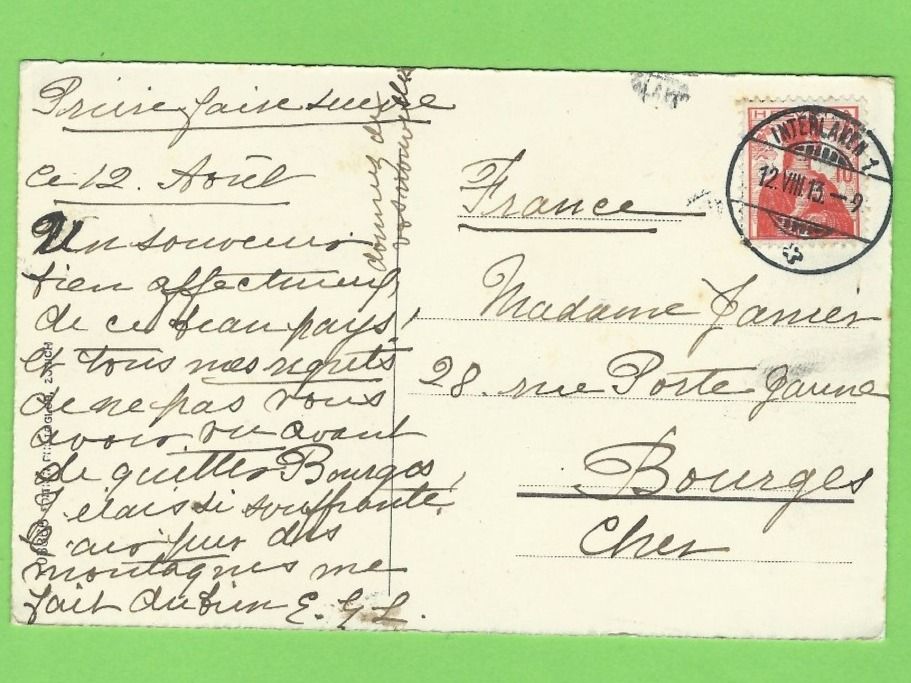 Prière faire suivre
Ce 12. Août
Un souvenir
bien affectueux
de ce beau pays!
et tous nos regrets
de ne pas vous
avoir vu avant
de quitter Bourges,
j'étais si souffrante!
L'air pur des
montagnes me
fait du bien E. G L.
donnez de
vos nouvelles
France
Madame Janier
28. rue Porte Jaune
Bourges
Cher
INTERLAKEN 1
12.VIII.13.-9
10
ZÜRICH